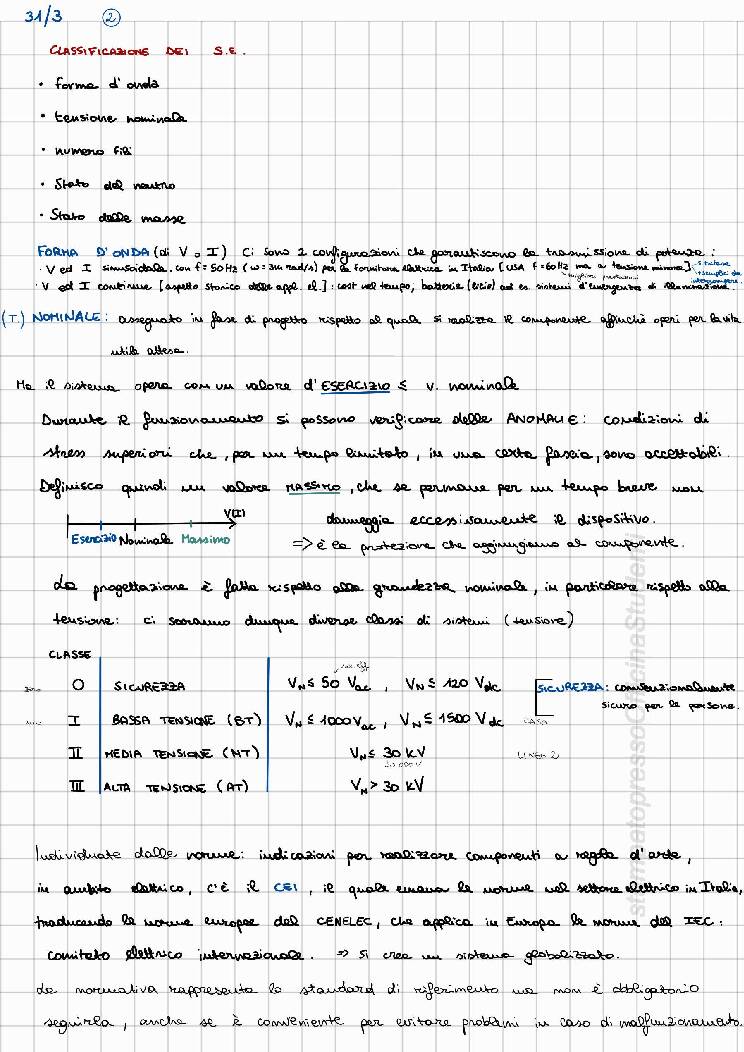 31/3 2
CLASSIFICAZIONE DEI S.E.
• forma d'onda
• tensione nominale
• numero fili
• Stato del neutro
• Stato delle masse
FORMA D'ONDA (di V o I) Ci sono 2 configurazioni che garantiscono la trasmissione di potenza:
· V ed I sinusoidale con f = 50 Hz (ω = 314 rad/s) per la fornitura elettrica in Italia [USA f = 60 Hz ma a tensione minore]
· V ed I continue [aspetto storico delle appl. el.]: cost nel tempo, batterie (litio) ad es sistemi d'emergenza di illuminazione.
(I.) NOMINALE: assegnato in fase di progetto rispetto al quale si realizza il componente affinchè operi per la vita
utile attesa.
Ma il sistema opera con un valore d'ESERCIZIO ≤ v. nominale
Durante il funzionamento si possono verificare delle ANOMALIE: condizioni di
stress superiori che, per un tempo limitato, in una certa fascia, sono accettabili.
Definisco quindi un valore MASSIMO, che se permane per un tempo breve non
danneggia eccessivamente il dispositivo.
V(I)
Esercizio Nominale Massimo
=> è la protezione che aggiungiamo al componente.
La progettazione è fatta rispetto alla grandezza nominale, in particolare rispetto alla
tensione: ci saranno dunque diverse classi di sistemi (tensione)
CLASSE
0 SICUREZZA V_N ≤ 50 V_ac, V_N ≤ 120 V_dc
SICUREZZA: convenzionalmente
sicuro per le persone.
I BASSA TENSIONE (BT) V_N ≤ 1000 V_ac, V_N ≤ 1500 V_dc CASA
II MEDIA TENSIONE (MT) V_N ≤ 30 kV
III ALTA TENSIONE (AT) V_N > 30 kV
Individuate dalle norme: indicazioni per realizzare componenti a regola d'arte,
in ambito elettrico, c'è il CEI, il quale emana le norme nel settore elettrico in Italia,
traducendo le norme europee del CENELEC, che applica in Europa le norme del IEC:
comitato elettrico internazionale. => Si crea un sistema globalizzato.
La normativa rappresenta lo standard di riferimento ma non è obbligatorio
seguirla, anche se è conveniente per evitare problemi in caso di malfunzionamento.
stampatopressoOfficinaStudenti